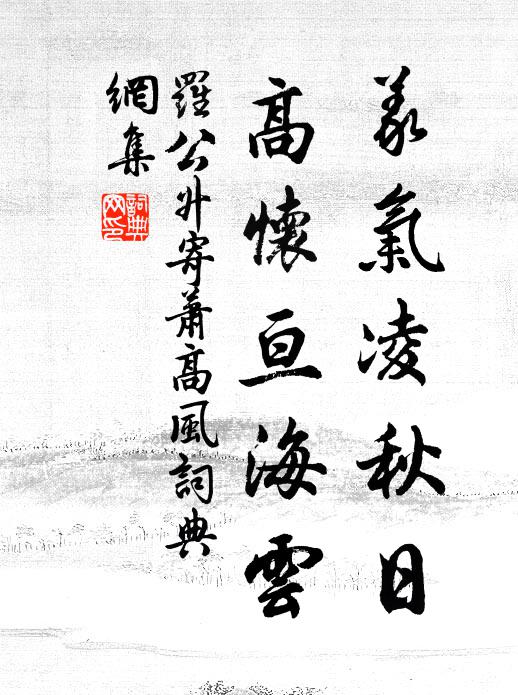 義氣凌秋日
高懷亘海雲
羅公升寄蕭高風詞典
網集
詞典
网印